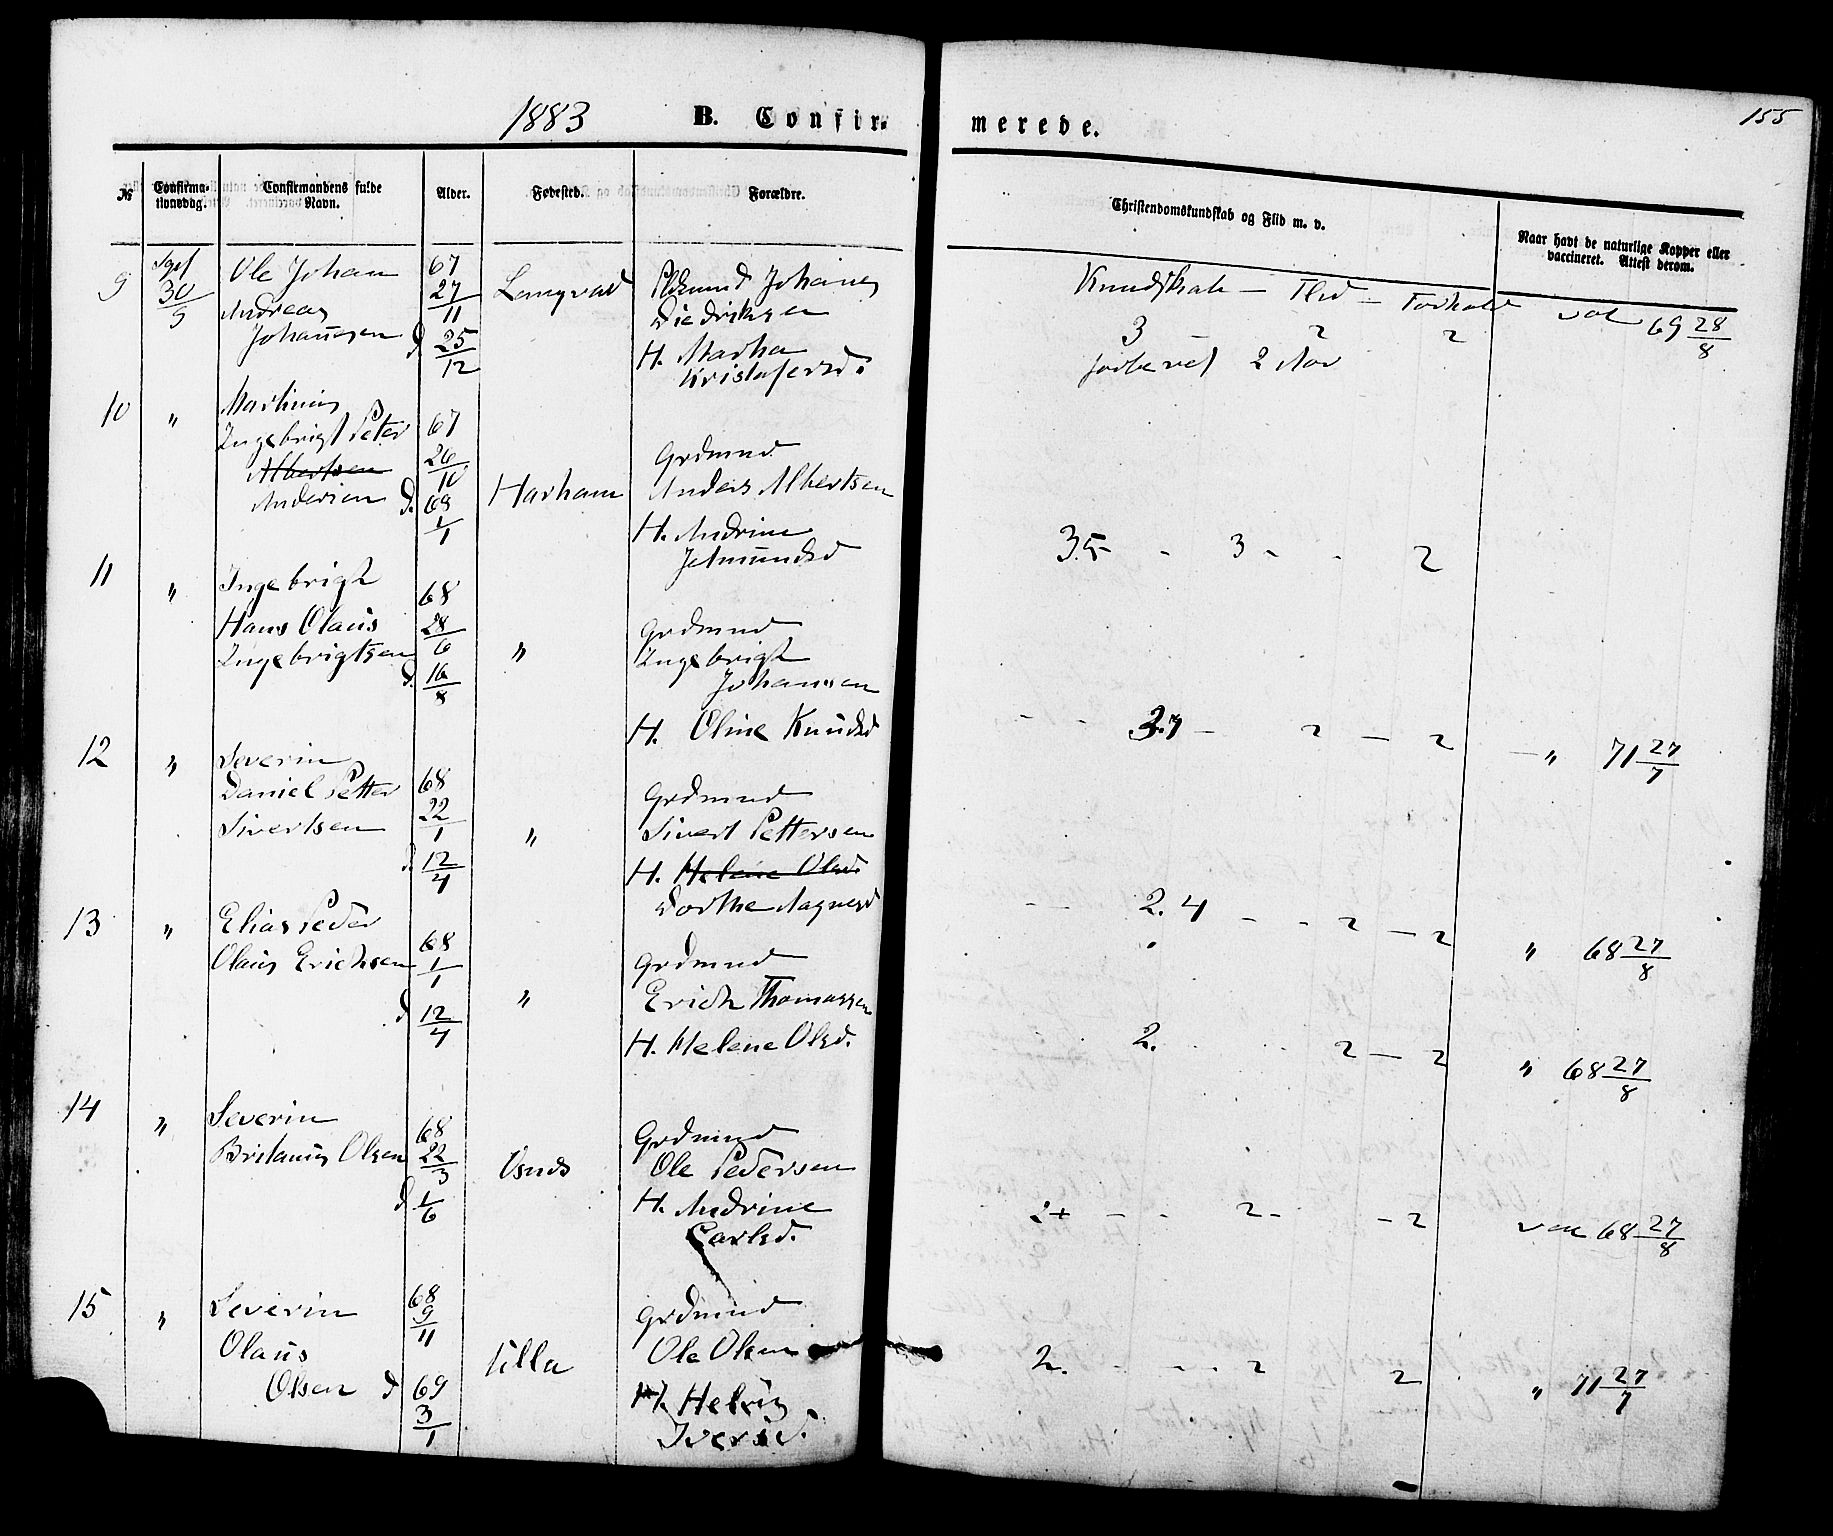 155
1883 B. Confir- merede.
№ Confirma-tionsdag. Confirmandens fulde Navn. Alder. Fødested. Forældre. Christendomskundskab og Flid m. v. Naar havt de naturlige Kopper eller vaccineret. Attest derom.
9 30/9 Ole Johan 67 Johanes Kundskab — Flid — Forhold
Andreas 27/11 Diedriksen 3 2 2 69 28/8
Johannesen d 25/12 H. Martha
Kristofersd. 2 Nov
10 " Martinus
Ingebrigt Peter 67
Albertsen 26/10 Grdmnd
Andersen d. 68 Harham Anders Albertsen
1/1 H. Andrine
Jetmundsd 3.5 - 3 - - 2
11 " Ingebrigt 68
Hans Olaus 28/6 Grdmnd
Ingebrigtsen " Ingebrigt
d. 16/8 Johansen
H. Oline Knudsd - - 2 — 2 — " 71 27/7
12 " Severin
Daniel Petter 68 Grdmnd
Sivertsen 22/1 " Sivert Pettersen
d. 12/4 H. Helene Olsd.
Dorthe 2. 4 - - 2 — 2 " 68 27/8
13 " Elias Peder 68
Olaus Erichsen 1/1 Grdmnd
" Erich Thomassen
d 12/4 H. Helene Olsd. 2. 2 — 2 " 68 27/8
14 " Severin 68 Grdmnd
Britanius Olsen 22/3 Ole Pedersen
d 1/6 H. Andrine 2+ - - 2 - - 2 68 27/8
Carlsd.
15 " Severin 68 Grdmnd
Olaus 9/11 Ulla Ole Olsen 2. - - - 2 2 " 71 27/7
Olsen d 69 H.
3/1 Iversd.